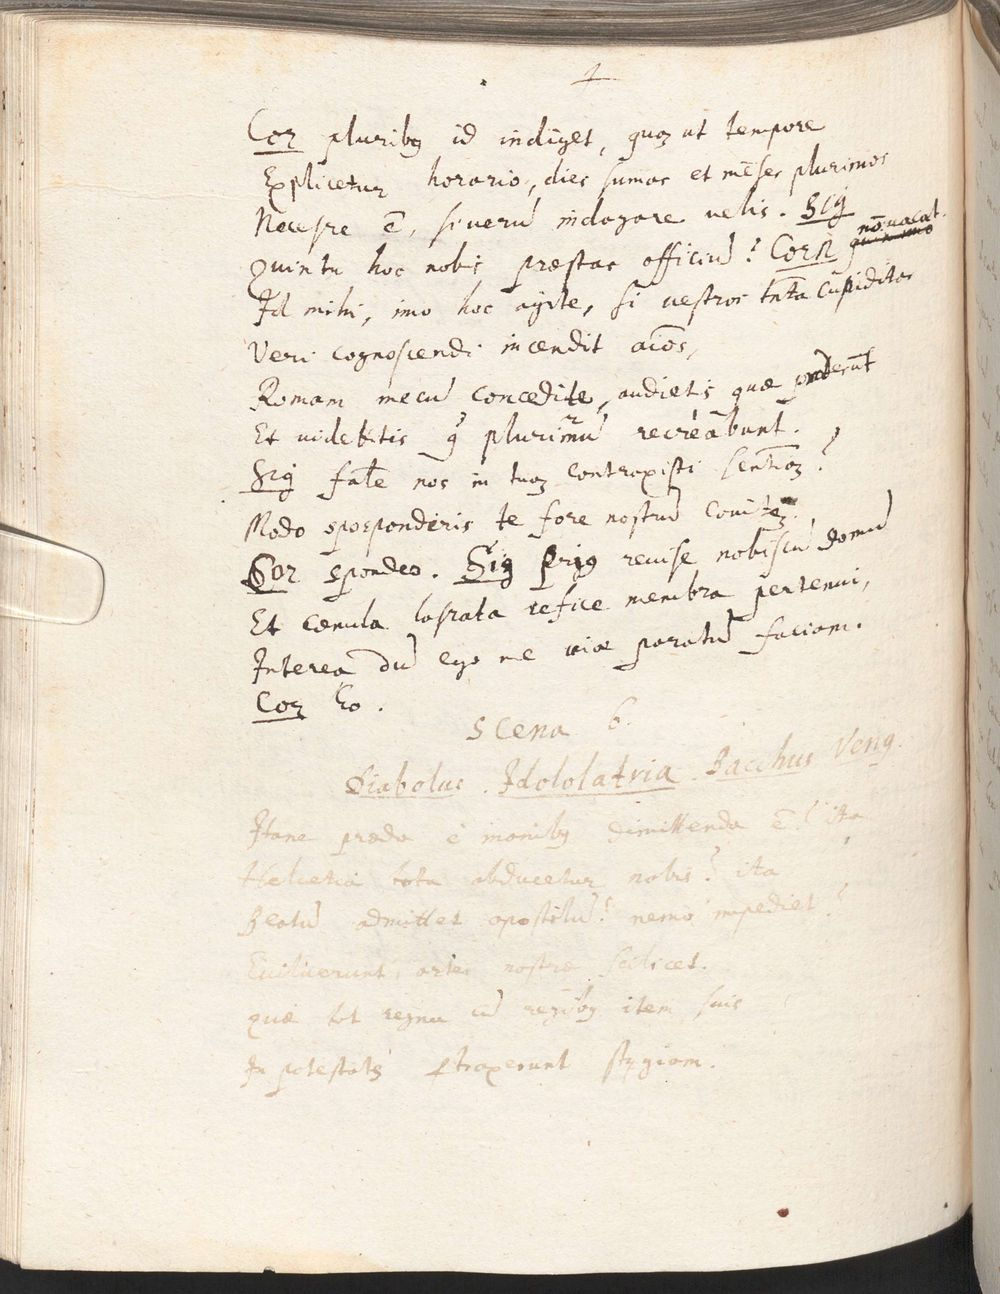 Cor pluribꝰ id indiget, quaꝫ ut tempore
Explicetur horario, dies sumas et mēses plurimos
Necesse ē, si verū indagare velis. Sig
nō vacat.
Quin tu hoc nobis præstas officiū? Corn quin imo
Id mihi, imo hoc agite, si vestros tāta cūpiditas
Veri cognoscendi incendit aīos,
Romam mecū concedite, audietis quæ proderūt
Et videbitis q̢ plurimū recreābunt.
Sig fate nos in tuaꝫ contraxisti sentīaꝫ?
Modo sposponderis te fore nostrū comiteꝫ
Cor spondeo. Sig priꝰ revise nobiscū domū
Et cœnula lassata refice membra pertenui,
Interea dū ego me viæ paratū faciam.
Cor Eo.
Scena 6.
Diabolus. Idololatria. Bacchus Venꝰ.
Itane præda è manibꝰ dimittenda ē? ita
Helvetia tota abducetur nobis? ita
Beatū admittet apostolū? nemo impediet?
Evilverunt artes nostræ scilicet.
quæ tot regna cū regibꝰ item suis
In potestatē ꝑtraxerunt stygiam.